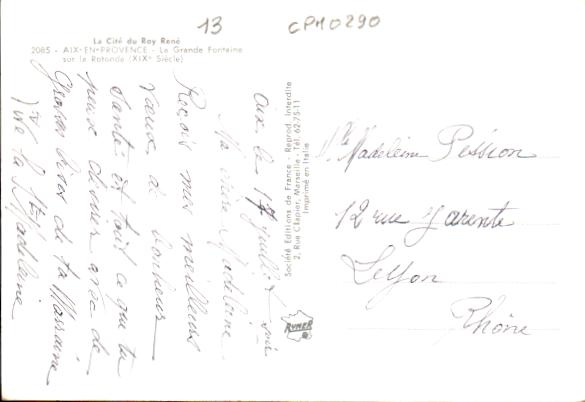 13
CPM0290
La Cité du Roy René
2085 - AIX-EN-PROVENCE - La Grande Fontaine
sur la Rotonde (XIXe Siècle)
Aix le 17 juillet soir
Ma chère Madeleine
Reçois mes meilleurs
vœux de bonheur
santé et tout ce que tu
peux désirer avec de
Grosses bises de ta Marraine
Vive la Ste Madeleine
Société Editions de France - Reprod. Interdite
2, Rue Clapier, Marseille - Tél. 62-75-11
Imprimé en Italie
RUNER
Mlle Madeleine Pession
12 rue Jarente
Lyon
Rhône